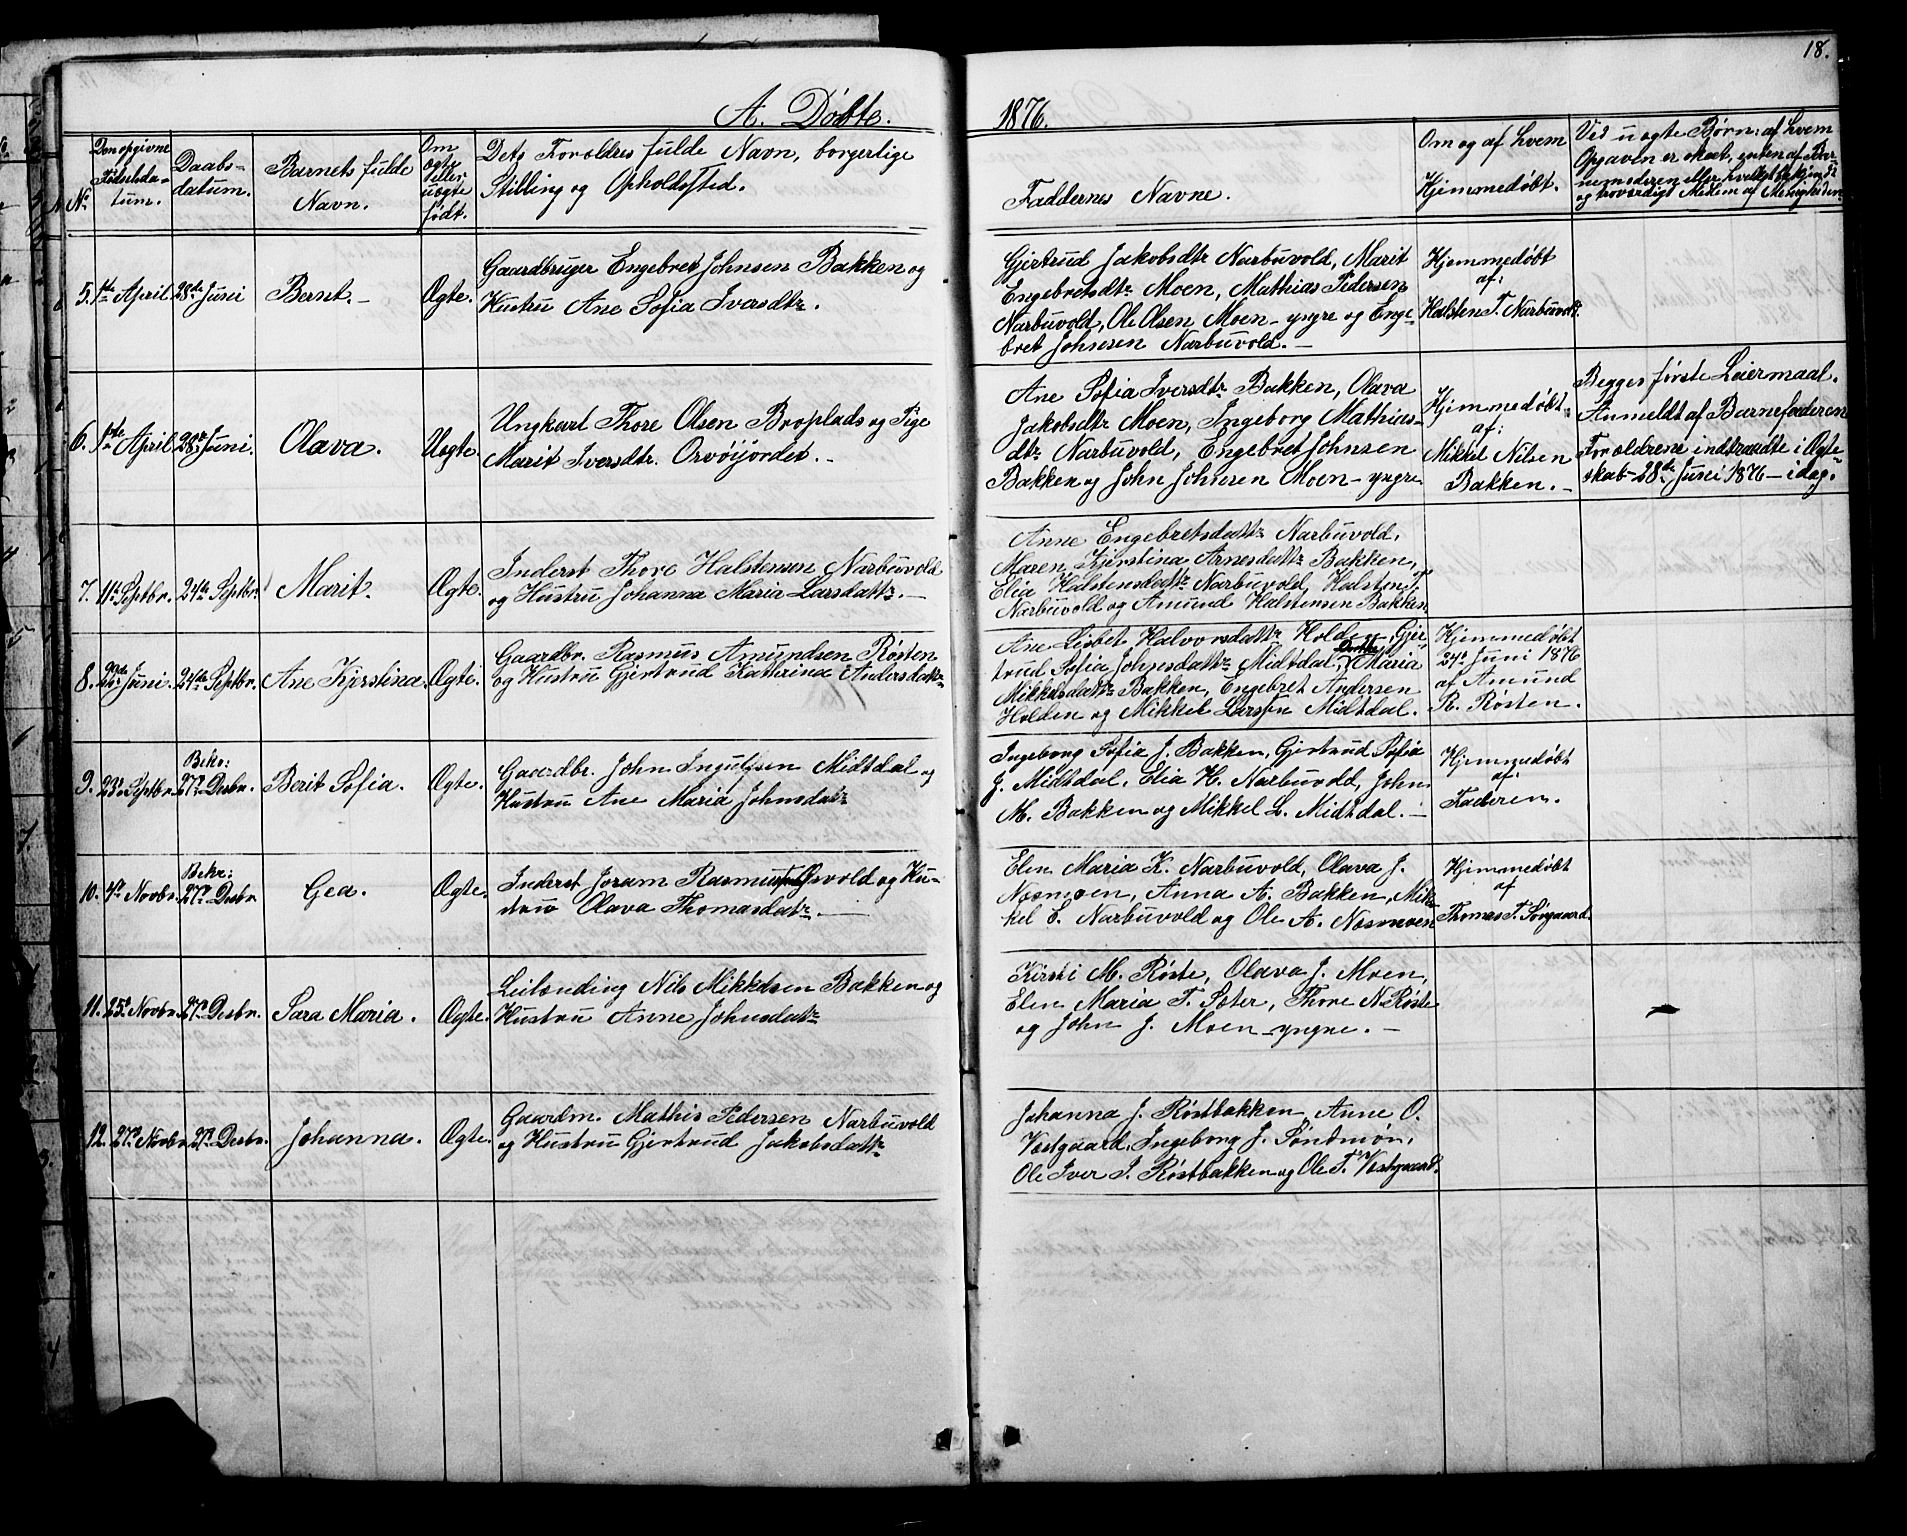 18.
A. Døbte. 1876.
No.
Den opgivne Fødselsda-
tum.
Daabs-
datum.
Barnets fulde
Navn.
Om
ægte
eller
uægte
født.
Dets Forældres fulde Navn, borgerlige
Stilling og Opholdssted.
Faddernes Navne.
Om og af hvem
Hjemmedøbt.
Ved uægte Børn: af hvem
Opgaven er skeet, enten af Bar-
nemoderen eller hvilket bekjendt
og troværdigt Medlem af Menigheden.
5. 1ste April. 28de Juni Bernt. Ægte.
Gaardbruger Engebret Johnsen Bakken og
Hustru Ane Sofia Iversdtr.
Gjertrud Jakobsdtr Narbuvold, Marit
Engebretsdtr Moen, Mathias Pedersen
Narbuvold, Ole Olsen Moen - yngre og Enge-
bret Johnsen Narbuvold. -
Hjemmedøbt
af:
Halsten T. Narbuvold.
6. 1ste April. 28de Juni. Olava. Uægte.
Ungkarl Thore Olsen Broplads og Pige
Marit Iversdtr. Orvøijordet. -
Ane Sofia Iversdtr Bakken, Olava
Jakobsdtr Moen, Ingeborg Mathias-
dtr Narbuvold, Engebret Johnsen
Bakken og John Johnsen Moen - yngre
Hjemmedøbt
af:
Mikkel Nilsen
Bakken. -
Begges første Leiermaal.
Anmeldt af Barnefaderen
Forældrene indtraadte i Ægte-
skab 28de Juni 1876 - idag.
7. 11te Septbr. 24de Septbr. Marit. Ægte.
Inderst Thore Halstensen Narbuvold
og Hustru Johanna Maria Larsdattr. -
Anne Engebretsdattr Narbuvold,
Maren Kjerstina Arnesdattr Bakken,
Elia Halstensdattr Narbuvold, Halsten T.
Narbuvold og Amund Halstensen Bakken
8. 23de Juni. 24de Septbr. Ane Kjerstina. Ægte.
Gaardbr. Rasmus Amundsen Røsten
og Hustru Gjertrud Kathrina Andersdatr
Ane Lisbet Halvorsdattr Holden, Gjer-
trud Sofia Johnsdattr Midtdal, Maria
Mikkelsdattr Bakken, Engebret Andersen
Holden og Mikkel Larssen Midtdal.
Hjemmedøbt
24de Juni 1876
af Amund
R. Røsten.
9. 23de Septbr. Bekr: 27de Desbr. Berit Sofia. Ægte.
Gaardbr. John Ingulfsen Midtdal og
Hustru Ane Maria Johnsdatr
Ingeborg Sofia J. Bakken, Gjertrud Sofia
J. Midtdal, Elia H. Narbuvold, John
M. Bakken og Mikkel L. Midtdal. -
Hjemmedøbt
af:
Faderen.
10. 4de Novbr. Bekr: 27de Desbr. Gea. Ægte.
Inderst Joram Rasmussen Osvold og Hu-
stru Olava Thomasdatr. -
Elen Maria K. Narbuvold, Olava J.
Næsmoen, Anna A. Bakken, Mik-
kel E. Narbuvold og Ole A. Næsmoen
Hjemmedøbt
af
Thomas T. Sørgaard.
11. 25de Novbr. 27de Desbr. Sara Maria. Ægte.
Leilænding Nils Mikkelsen Bakken og
Hustru Anne Johnsdatr
Kirsti M. Røste, Olava J. Moen,
Elen Maria T. Sæter, Thore N. Røste
og John J. Moen - yngre. -
12. 27de Novbr. 27de Desbr. Johanna. Ægte.
Gaardm. Mathis Pedersen Narbuvold
og Hustru Gjertrud Jakobsdattr
Johanna J. Røstbakken, Anne O.
Væstgaard, Ingeborg J. Søndmør,
Ole Iver J. Røstbakken og Ole T. Væstgaard.